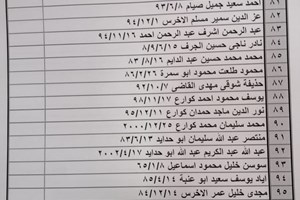 احمد سعيد جميل صيام ٩٣/٦/٨
٨٢ عز الدين سمير مسلم الاخرس ٩٤/١٢/١
٨٣ عبد الرحمن اشرف عبد الرحمن احمد ٩٤/١١/١٦
٨٤ نادر ناجي حسين الجرف ٨/٩/٦/١٥
٨٥ محمد محمد حسين عبد الدايم ٨٣/٨/١٦
٨٦ محمود طلعت محمود ابو سمرة ٨٦/٢/٢٦
٨٧ حذيفة شوقي مهدي القاضي ٩٢/١٠/٧
٨٨ يوسف محمود احمد كوارع ٩٨/١١/١٧
٨٩ نور الدين ماجد حمدان كوارع ٩٥/١٢/١١
٩٠ محمد سليمان محمد كوارع ٢٠٠٠/١٢/٢٥
٩١ منتصر عبد الله سليمان ابو حدايد
٩٢ عبد الله عبد الكريم عبد الله ابو حدايد ٢٠٠٢/٤/١٧
٩٣ سوسن خليل محمود اسماعيل ٦٥/١/٨
٩٤ اياد يوسف سعيد ابو عنبة ٨٥/٤/١٤
٩٥ مجدي خليل عمر الاخرس ٨٤/١٢/١٤